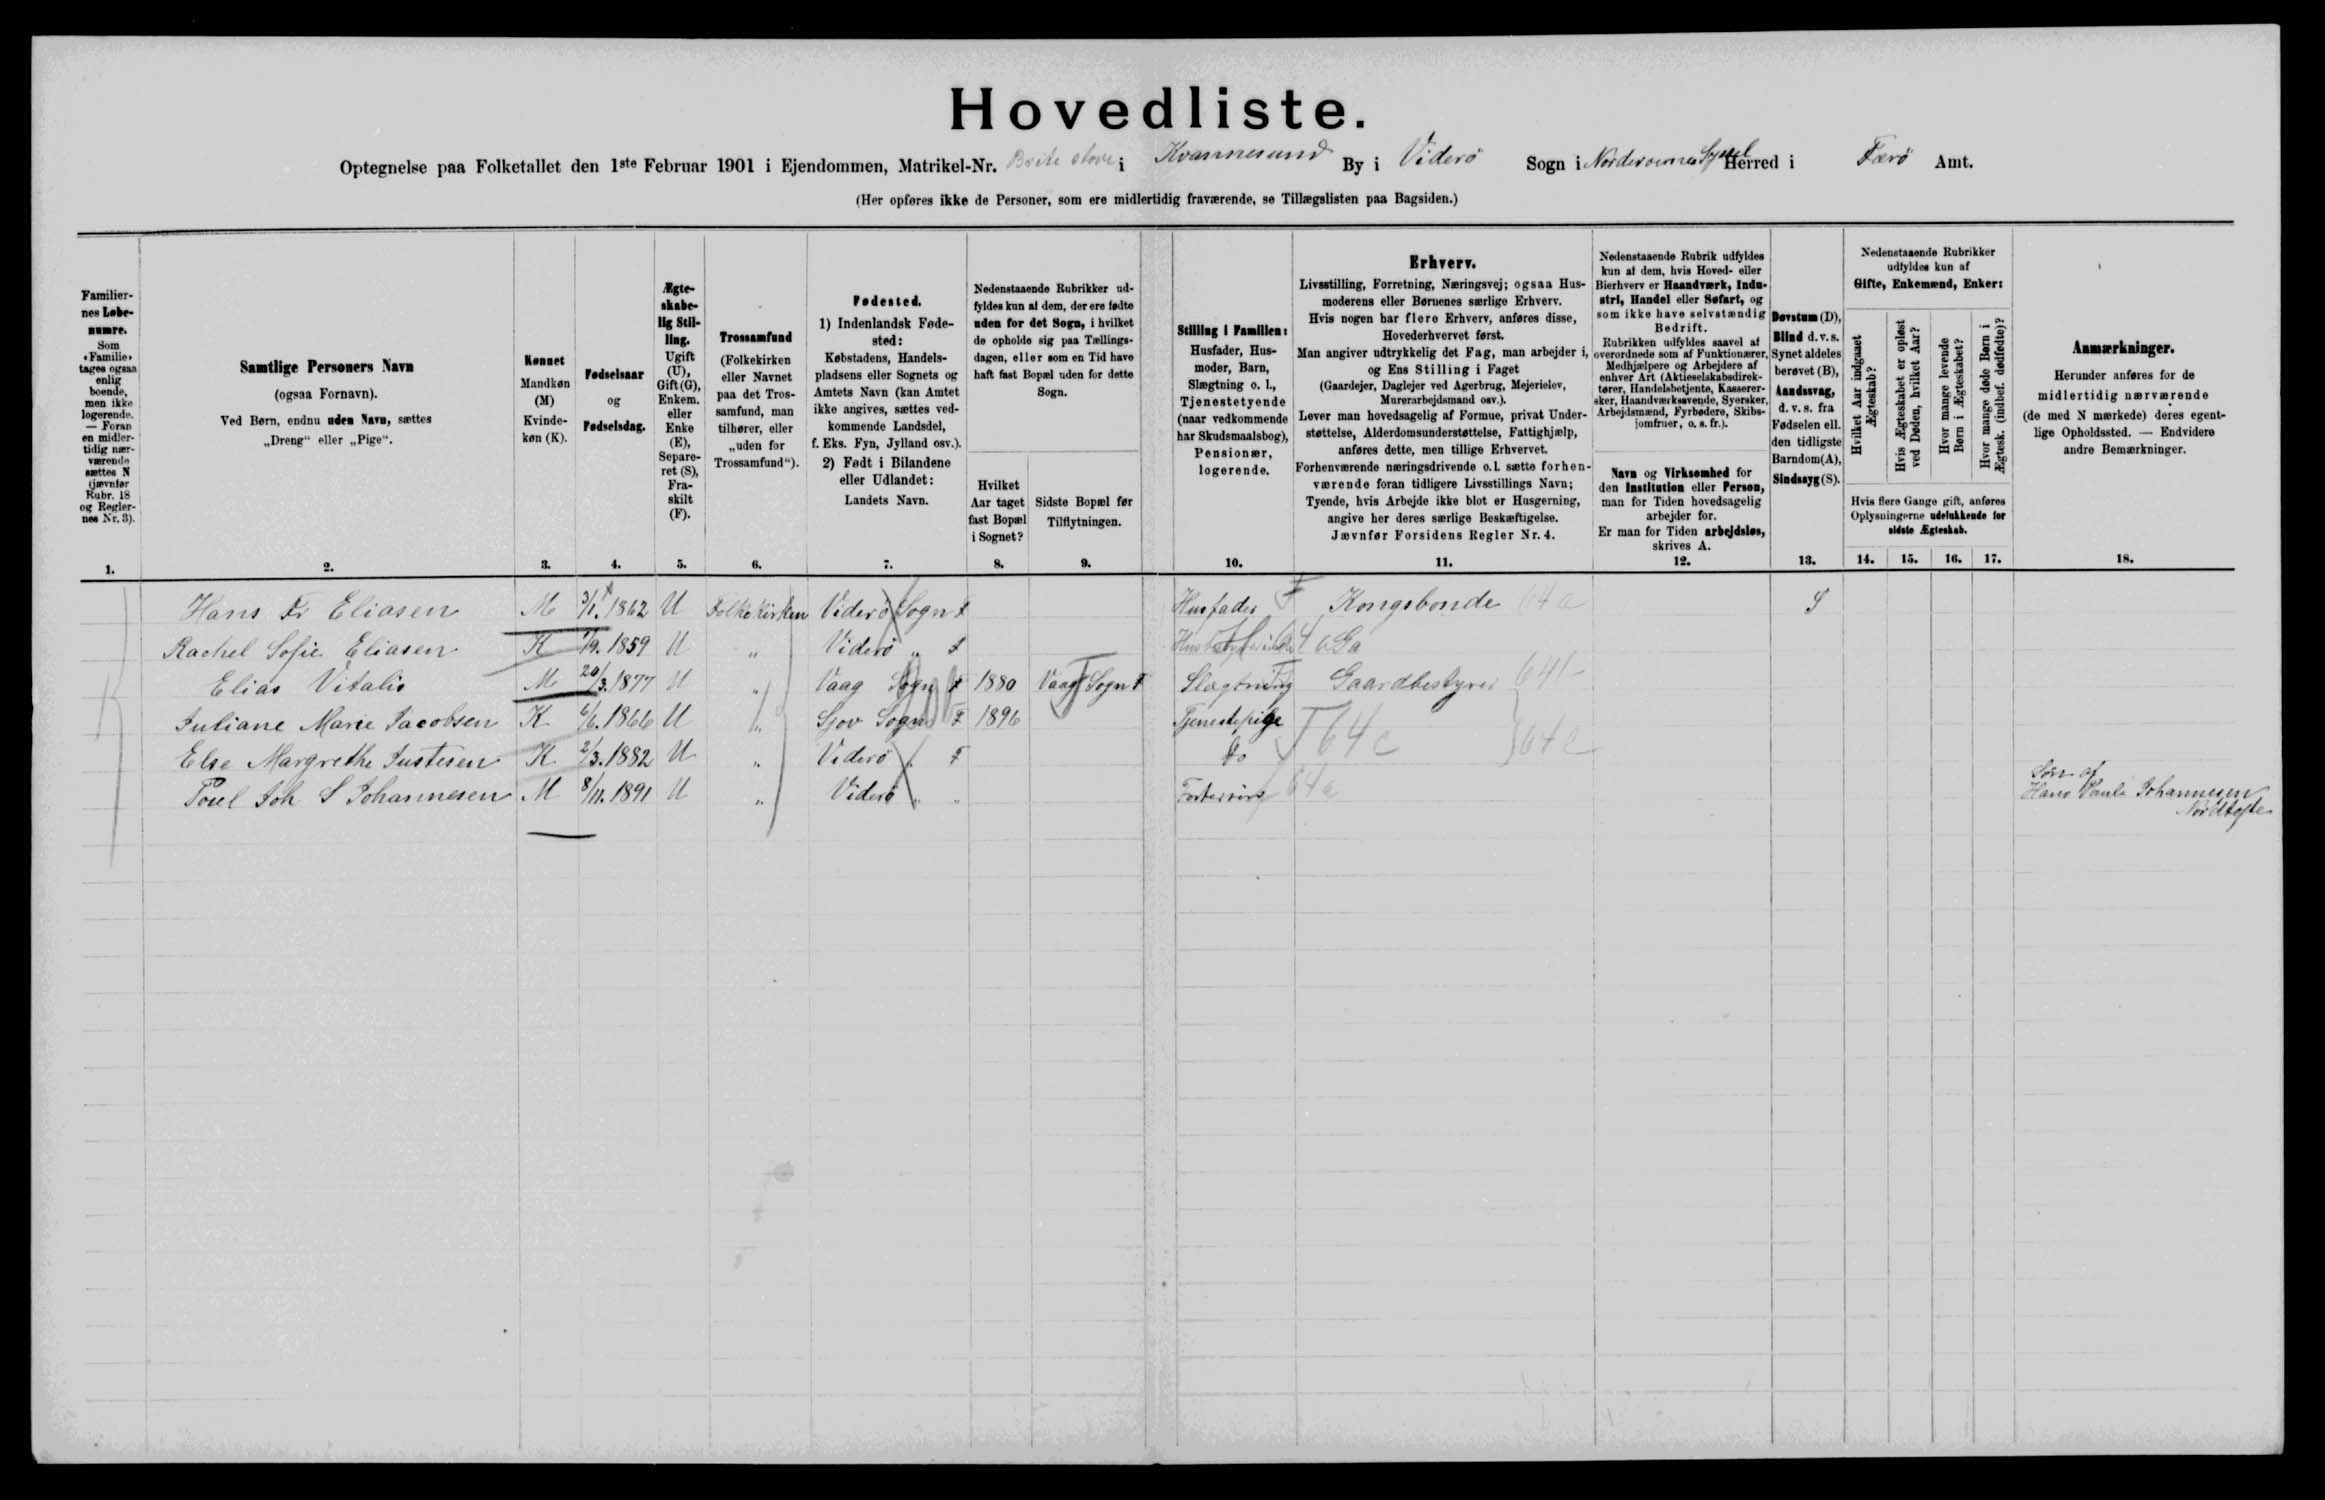 Hovedliste.
Optegnelse paa Folketallet den 1ste Februar 1901 i Ejendommen, Matrikel-Nr. Brite stove i Kvannesund By i Viderö Sogn i Norderoernes Syssel Herred i Færö Amt.
(Her opføres ikke de Personer, som ere midlertidig fraværende, se Tillægslisten paa Bagsiden.)
Familier-
nes Løbe-
numre.
Som
«Familie»
tages ogsaa
enlig
boende,
men ikke
logerende.
— Foran
en midler-
tidig nær-
værende
sættes N
(jævnfør
Rubr. 18
og Regler-
nes Nr. 3).
1.
Samtlige Personers Navn
(ogsaa Fornavn).
Ved Børn, endnu uden Navn, sættes
„Dreng“ eller „Pige“.
2.
Kønnet
Mandkøn
(M)
Kvinde-
køn (K).
3.
Fødselsaar
og
Fødselsdag.
4.
Ægte-
skabe-
lig Stil-
ling.
Ugift
(U),
Gift (G),
Enkem.
eller
Enke
(E),
Separe-
ret (S),
Fra-
skilt
(F).
5.
Trossamfund
(Folkekirken
eller Navnet
paa det Tros-
samfund, man
tilhører, eller
„uden for
Trossamfund“).
6.
Fødested.
1) Indenlandsk Føde-
sted:
Købstadens, Handels-
pladsens eller Sognets og
Amtets Navn (kan Amtet
ikke angives, sættes ved-
kommende Landsdel,
f. Eks. Fyn, Jylland osv.).
2) Født i Bilandene
eller Udlandet:
Landets Navn.
7.
Nedenstaaende Rubrikker ud-
fyldes kun af dem, der ere fødte
uden for det Sogn, i hvilket
de opholde sig paa Tællings-
dagen, eller som en Tid have
haft fast Bopæl uden for dette
Sogn.
Hvilket
Aar taget
fast Bopæl
i Sognet?
8.
Sidste Bopæl før
Tilflytningen.
9.
Stilling i Familien:
Husfader, Hus-
moder, Barn,
Slægtning o. l.,
Tjenestetyende
(naar vedkommende
har Skudsmaalsbog),
Pensionær,
logerende.
10.
Erhverv.
Livsstilling, Forretning, Næringsvej; ogsaa Hus-
moderens eller Børnenes særlige Erhverv.
Hvis nogen har flere Erhverv, anføres disse,
Hovederhvervet først.
Man angiver udtrykkelig det Fag, man arbejder i,
og Ens Stilling i Faget
(Gaardejer, Daglejer ved Agerbrug, Mejerielev,
Murerarbejdsmand osv.).
Lever man hovedsagelig af Formue, privat Under-
støttelse, Alderdomsunderstøttelse, Fattighjælp,
anføres dette, men tillige Erhvervet.
Forhenværende næringsdrivende o. l. sætte forhen-
værende foran tidligere Livsstillings Navn;
Tyende, hvis Arbejde ikke blot er Husgerning,
angive her deres særlige Beskæftigelse.
Jævnfør Forsidens Regler Nr. 4.
11.
Nedenstaaende Rubrik udfyldes
kun af dem, hvis Hoved- eller
Bierhverv er Haandværk, Indu-
stri, Handel eller Søfart, og
som ikke have selvstændig
Bedrift.
Rubrikken udfyldes saavel af
overordnede som af Funktionærer,
Medhjælpere og Arbejdere af
enhver Art (Aktieselskabsdirek-
tører, Handelsbetjente, Kasserer-
sker, Haandværkssvende, Syersker,
Arbejdsmænd, Fyrbødere, Skibs-
jomfruer, o. s. fr.).
Navn og Virksomhed for
den Institution eller Person,
man for Tiden hovedsagelig
arbejder for.
Er man for Tiden arbejdsløs,
skrives A.
12.
Døvstum (D),
Blind d. v. s.
Synet aldeles
berøvet (B),
Aandssvag,
d. v. s. fra
Fødselen ell.
den tidligste
Barndom (A),
Sindssyg (S).
13.
Nedenstaaende Rubrikker
udfyldes kun af
Gifte, Enkemænd, Enker:
Hvilket Aar indgaaet
Ægteskab?
Hvis Ægteskabet er opløst
ved Døden, hvilket Aar?
Hvor mange levende
Børn i Ægteskabet?
Hvor mange døde Børn i
Ægtesk. (indbef. dødfødte)?
Hvis flere Gange gift, anføres
Oplysningerne udelukkende for
sidste Ægteskab.
14. 15. 16. 17.
Anmærkninger.
Herunder anføres for de
midlertidig nærværende
(de med N mærkede) deres egent-
lige Opholdssted. — Endvidere
andre Bemærkninger.
18.
Hans Fr Eliasen M 3/1. 1862 U Folkekirken Viderö Sogn F Husfader F Kongsbonde 64 a S
Rachel Sofie Eliasen K 1/9. 1859 U „ Viderö „ F 64 a Ga
Elias Vitalis M 20/3. 1877 U „ Vaag Sogn F 1880 Vaag Sogn F Slægtning Gaardbestyrer 64
Juliane Marie Jacobsen K 6/6. 1866 U „ Sjov Sogn F 1896 Tjenestepige
Else Margrethe Justesen K 2/3. 1882 U „ Viderö „ F do 64 c 64 c
Poul Joh S Johannesen M 8/11. 1891 U „ Viderö „ „ 64 a Søn af
Hans Pauli Johannesen
Nordtofte